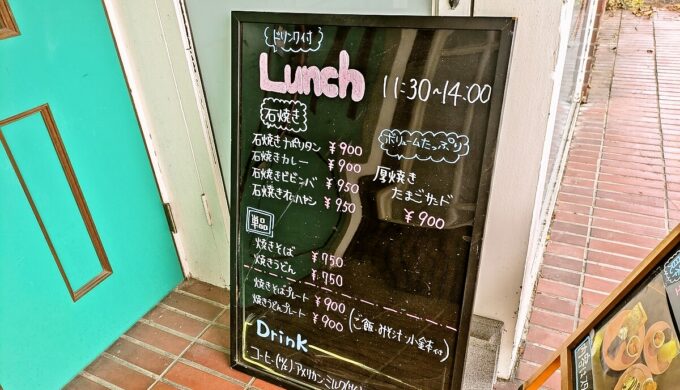 ドリンク付
Lunch 11:30~14:00
石焼き
石焼きナポリタン ¥900
石焼きカレー ¥900
石焼きビビンバ ¥950
石焼きオムハヤシ ¥950
ボリュームたっぷり
厚焼き
たまごサンド
¥900
単品
焼きそば ¥750
焼うどん ¥750
焼きそばプレート ¥900
焼うどんプレート ¥900
(ご飯・みそ汁・小鉢付)
Drink
コーヒー(H/I) アメリカン ミルク(H/I)